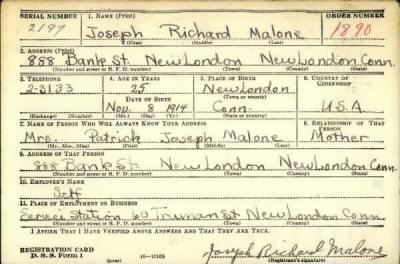 SERIAL NUMBER 1. NAME (Print) ORDER NUMBER
2197 Joseph Richard Malone 1890
(First) (Middle) (Last)
2. ADDRESS (Print)
888 Bank St. New London New London Conn.
(Number and street or R. F. D. number) (Town) (County) (State)
3. TELEPHONE 4. AGE IN YEARS 5. PLACE OF BIRTH 6. COUNTRY OF CITIZENSHIP
2-8133 25 New London
DATE OF BIRTH (Town or county)
Nov. 8 1914 Conn. U.S.A
(Exchange) (Number) (Mo.) (Day) (Yr.) (State or country)
7. NAME OF PERSON WHO WILL ALWAYS KNOW YOUR ADDRESS 8. RELATIONSHIP OF THAT PERSON
Mrs. Patrick Joseph Malone Mother
(Mr., Mrs., Miss) (First) (Middle) (Last)
9. ADDRESS OF THAT PERSON
888 Bank St. New London New London Conn.
(Number and street or R. F. D. number) (Town) (County) (State)
10. EMPLOYER'S NAME
Self
11. PLACE OF EMPLOYMENT OR BUSINESS
Service Station 60 Truman St. New London Conn.
(Number and street or R. F. D. number) (Town) (County) (State)
I AFFIRM THAT I HAVE VERIFIED ABOVE ANSWERS AND THAT THEY ARE TRUE.
REGISTRATION CARD
D. S. S. Form 1 16-17105 Joseph Richard Malone
(Registrant's signature)